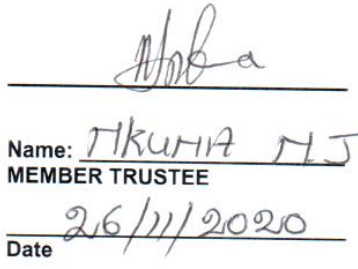 Name: MKUMA MJ
MEMBER TRUSTEE
26/11/2020
Date